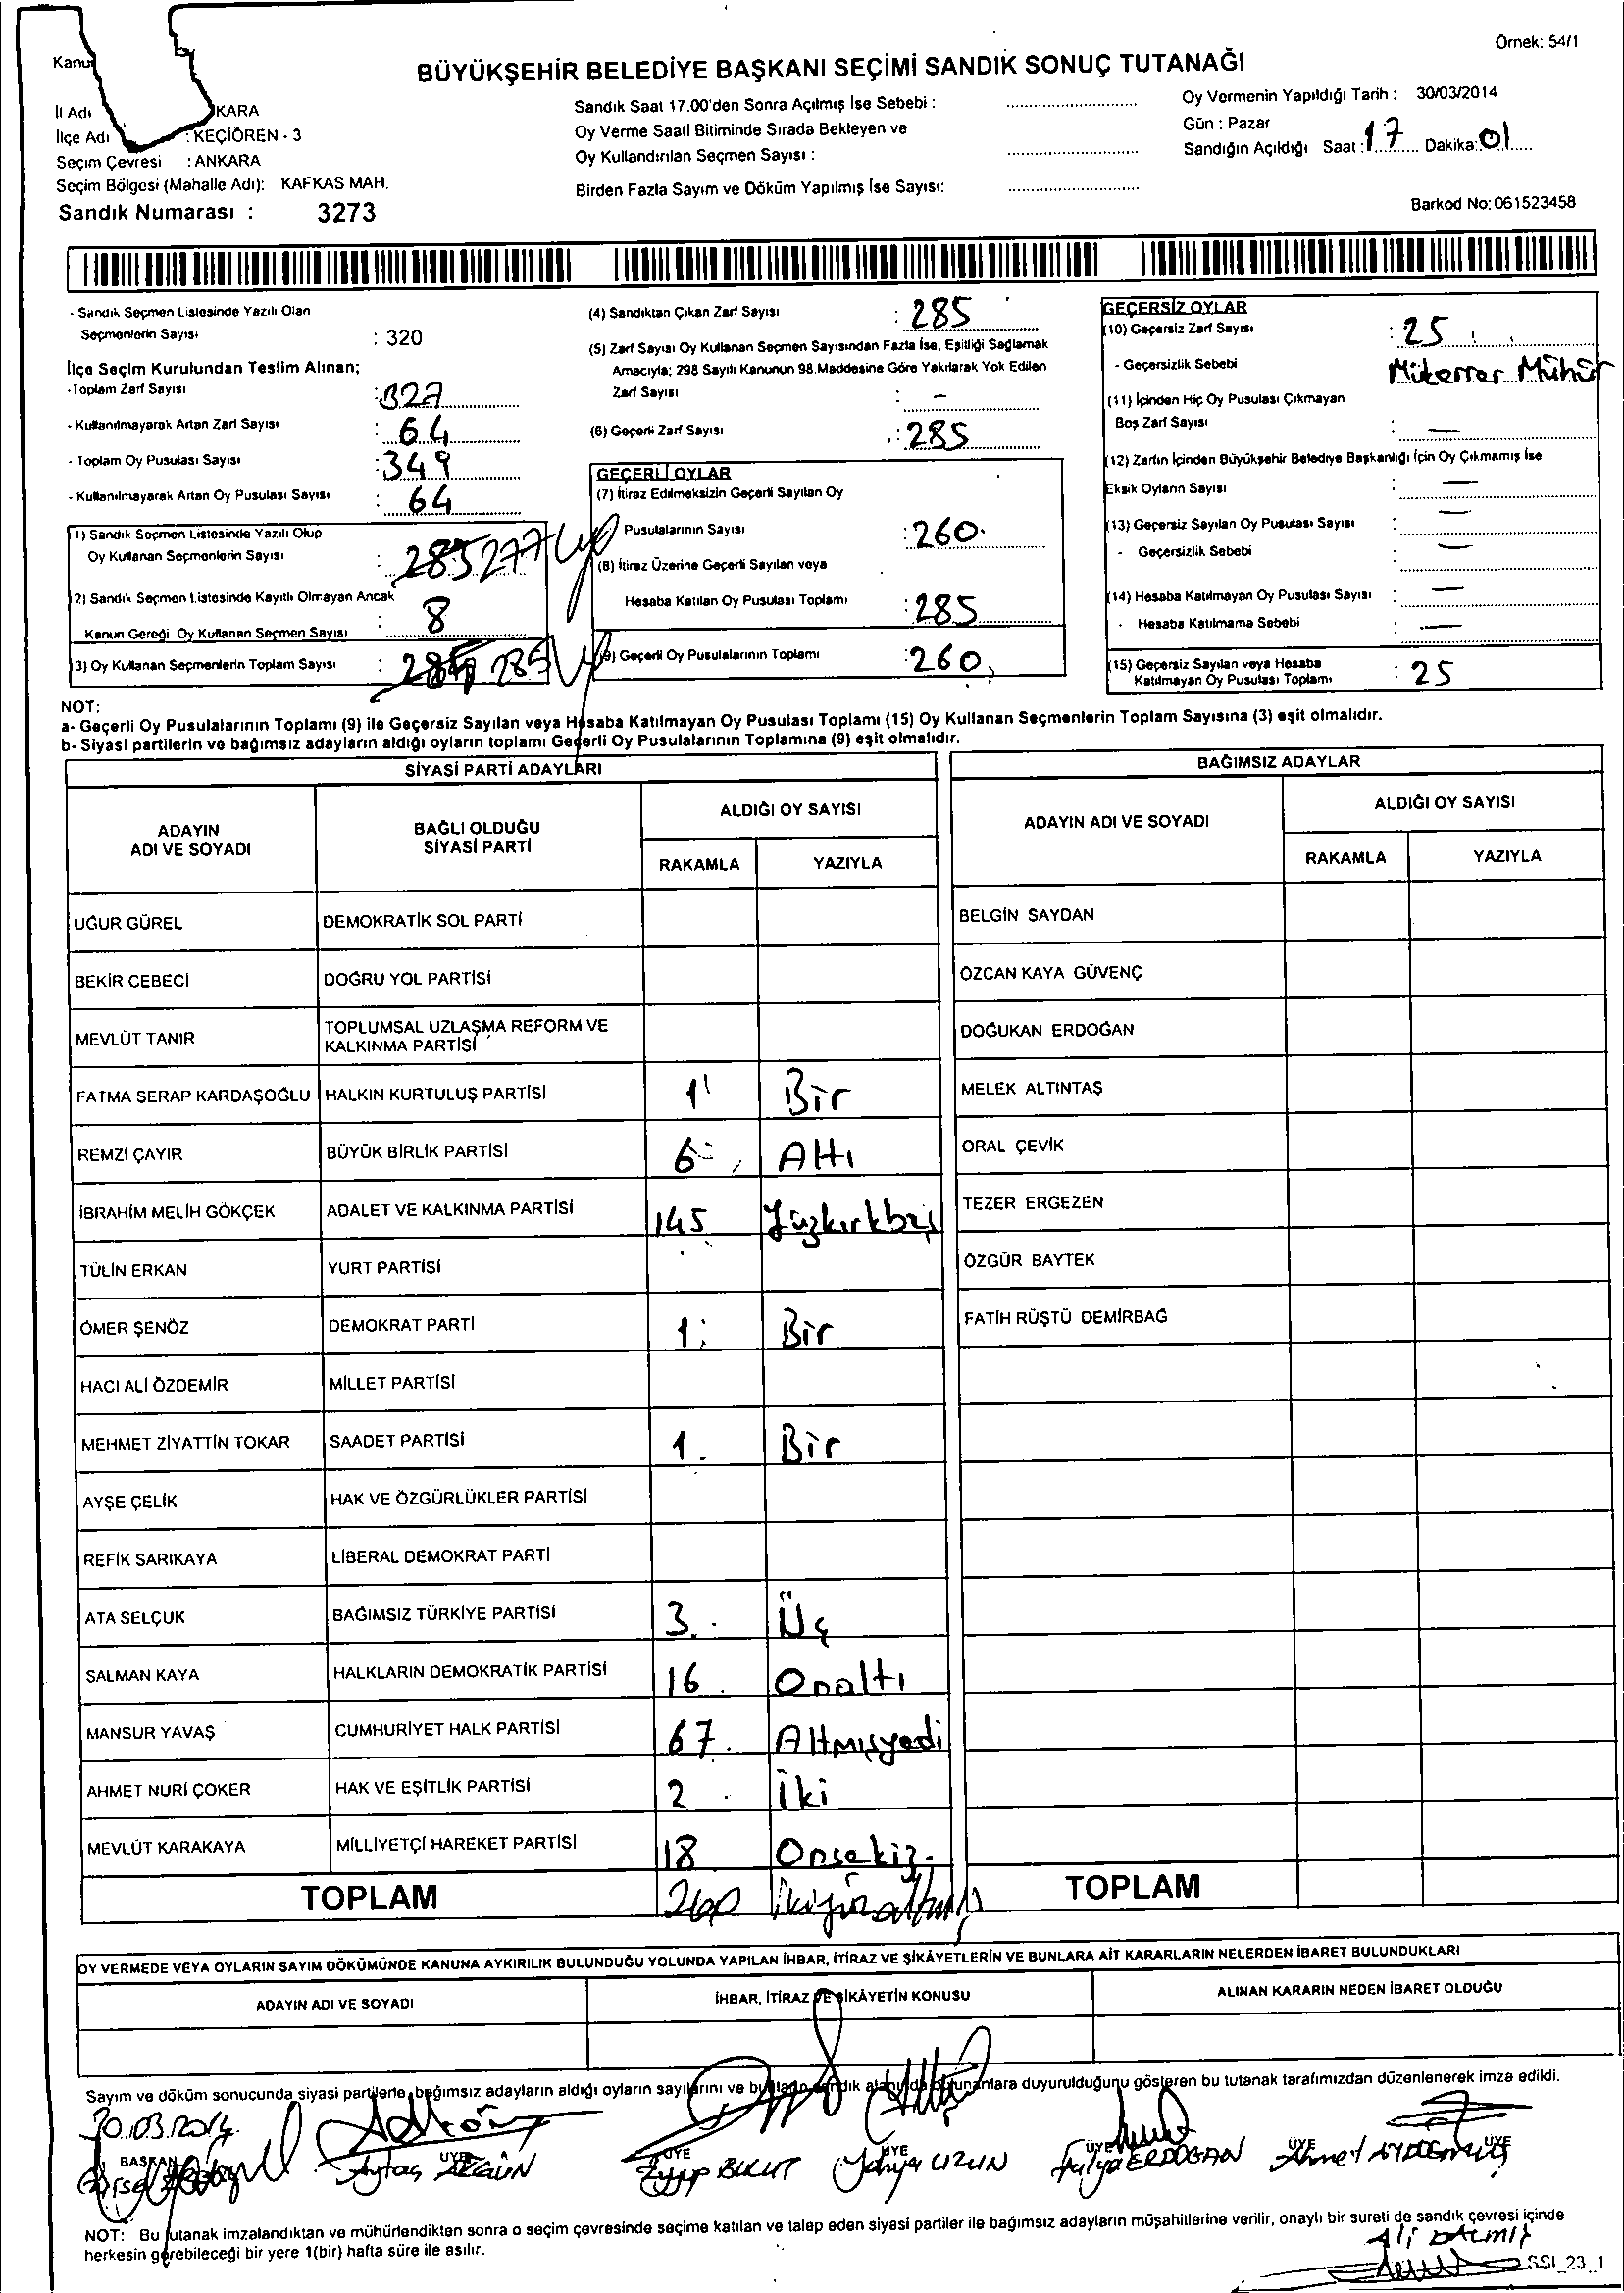 Örnek: 54/1
Kanu
BÜYÜKŞEHİR BELEDİYE BAŞKANI SEÇİMİ SANDIK SONUÇ TUTANAĞI
İl Adı KARA
İlçe Adı : KEÇİÖREN - 3
Seçim Çevresi : ANKARA
Seçim Bölgesi (Mahalle Adı): KAFKAS MAH.
Sandık Numarası : 3273
Sandık Saat 17.00'den Sonra Açılmış İse Sebebi :
Oy Verme Saati Bitiminde Sırada Bekleyen ve
Oy Kullandırılan Seçmen Sayısı :
Birden Fazla Sayım ve Döküm Yapılmış İse Sayısı:
Oy Vermenin Yapıldığı Tarih : 30/03/2014
Gün : Pazar
Sandığın Açıldığı Saat : 17 Dakika: 01
Barkod No: 061523458
- Sandık Seçmen Listesinde Yazılı Olan
Seçmenlerin Sayısı : 320
İlçe Seçim Kurulundan Teslim Alınan;
-Toplam Zarf Sayısı : 327
- Kullanılmayarak Artan Zarf Sayısı : 64
- Toplam Oy Pusulası Sayısı : 349
- Kullanılmayarak Artan Oy Pusulası Sayısı : 64
1) Sandık Seçmen Listesinde Yazılı Olup
Oy Kullanan Seçmenlerin Sayısı : 285 277
2) Sandık Seçmen Listesinde Kayıtlı Olmayan Ancak
Kanun Gereği Oy Kullanan Seçmen Sayısı : 8
3) Oy Kullanan Seçmenlerin Toplam Sayısı : 285
(4) Sandıktan Çıkan Zarf Sayısı : 285
(5) Zarf Sayısı Oy Kullanan Seçmen Sayısından Fazla İse, Eşitliği Sağlamak
Amacıyla; 298 Sayılı Kanunun 98.Maddesine Göre Yakılarak Yok Edilen
Zarf Sayısı : -
(6) Geçerli Zarf Sayısı : 285
GEÇERLİ OYLAR
(7) İtiraz Edilmeksizin Geçerli Sayılan Oy
Pusulalarının Sayısı : 260
(8) İtiraz Üzerine Geçerli Sayılan veya
Hesaba Katılan Oy Pusulası Toplamı : 285
(9) Geçerli Oy Pusulalarının Toplamı : 260
GEÇERSİZ OYLAR
(10) Geçersiz Zarf Sayısı : 25
- Geçersizlik Sebebi Mükerrer Mühür
(11) İçinden Hiç Oy Pusulası Çıkmayan
Boş Zarf Sayısı : —
(12) Zarfın İçinden Büyükşehir Belediye Başkanlığı İçin Oy Çıkmamış İse
Eksik Oyların Sayısı : —
(13) Geçersiz Sayılan Oy Pusulası Sayısı : —
- Geçersizlik Sebebi : —
(14) Hesaba Katılmayan Oy Pusulası Sayısı : —
- Hesaba Katılmama Sebebi : —
(15) Geçersiz Sayılan veya Hesaba
Katılmayan Oy Pusulası Toplamı : 25
NOT:
a- Geçerli Oy Pusulalarının Toplamı (9) ile Geçersiz Sayılan veya Hesaba Katılmayan Oy Pusulası Toplamı (15) Oy Kullanan Seçmenlerin Toplam Sayısına (3) eşit olmalıdır.
b- Siyasi partilerin ve bağımsız adayların aldığı oyların toplamı Geçerli Oy Pusulalarının Toplamına (9) eşit olmalıdır.
SİYASİ PARTİ ADAYLARI
ADAYIN ADI VE SOYADI BAĞLI OLDUĞU SİYASİ PARTİ ALDIĞI OY SAYISI
RAKAMLA YAZIYLA
UĞUR GÜREL DEMOKRATİK SOL PARTİ
BEKİR CEBECİ DOĞRU YOL PARTİSİ
MEVLÜT TANIR TOPLUMSAL UZLAŞMA REFORM VE KALKINMA PARTİSİ
FATMA SERAP KARDAŞOĞLU HALKIN KURTULUŞ PARTİSİ 1 Bir
REMZİ ÇAYIR BÜYÜK BİRLİK PARTİSİ 6 Altı
İBRAHİM MELİH GÖKÇEK ADALET VE KALKINMA PARTİSİ 145 Yüzkırkbeş
TÜLİN ERKAN YURT PARTİSİ
ÖMER ŞENÖZ DEMOKRAT PARTİ 1 Bir
HACI ALİ ÖZDEMİR MİLLET PARTİSİ
MEHMET ZİYATTİN TOKAR SAADET PARTİSİ 1 Bir
AYŞE ÇELİK HAK VE ÖZGÜRLÜKLER PARTİSİ
REFİK SARIKAYA LİBERAL DEMOKRAT PARTİ
ATA SELÇUK BAĞIMSIZ TÜRKİYE PARTİSİ 3 Üç
SALMAN KAYA HALKLARIN DEMOKRATİK PARTİSİ 16 Onaltı
MANSUR YAVAŞ CUMHURİYET HALK PARTİSİ 67 Altmışyedi
AHMET NURİ ÇOKER HAK VE EŞİTLİK PARTİSİ 2 İki
MEVLÜT KARAKAYA MİLLİYETÇİ HAREKET PARTİSİ 18 Onsekiz
TOPLAM 260 ikiyüzaltmış
BAĞIMSIZ ADAYLAR
ADAYIN ADI VE SOYADI ALDIĞI OY SAYISI
RAKAMLA YAZIYLA
BELGİN SAYDAN
ÖZCAN KAYA GÜVENÇ
DOĞUKAN ERDOĞAN
MELEK ALTINTAŞ
ORAL ÇEVİK
TEZER ERGEZEN
ÖZGÜR BAYTEK
FATİH RÜŞTÜ DEMİRBAĞ
TOPLAM
OY VERMEDE VEYA OYLARIN SAYIM DÖKÜMÜNDE KANUNA AYKIRILIK BULUNDUĞU YOLUNDA YAPILAN İHBAR, İTİRAZ VE ŞİKÂYETLERİN VE BUNLARA AİT KARARLARIN NELERDEN İBARET BULUNDUKLARI
ADAYIN ADI VE SOYADI İHBAR, İTİRAZ VE ŞİKÂYETİN KONUSU ALINAN KARARIN NEDEN İBARET OLDUĞU
Sayım ve döküm sonucunda siyasi partilerle, bağımsız adayların aldığı oyların sayılarını ve bunların sandık alanında bulunanlara duyurulduğunu gösteren bu tutanak tarafımızdan düzenlenerek imza edildi.
30.03.2014
BAŞKAN ÜYE ÜYE ÜYE ÜYE ÜYE ÜYE
Aytaç Eyyüp BULUT Yahya UZUN Fulya ERDOĞAN Ahmet AYDOĞMUŞ
NOT: Bu tutanak imzalandıktan ve mühürlendikten sonra o seçim çevresinde seçime katılan ve talep eden siyasi partiler ile bağımsız adayların müşahitlerine verilir, onaylı bir sureti de sandık çevresi içinde
herkesin görebileceği bir yere 1(bir) hafta süre ile asılır.
Ali
SSI_23_1